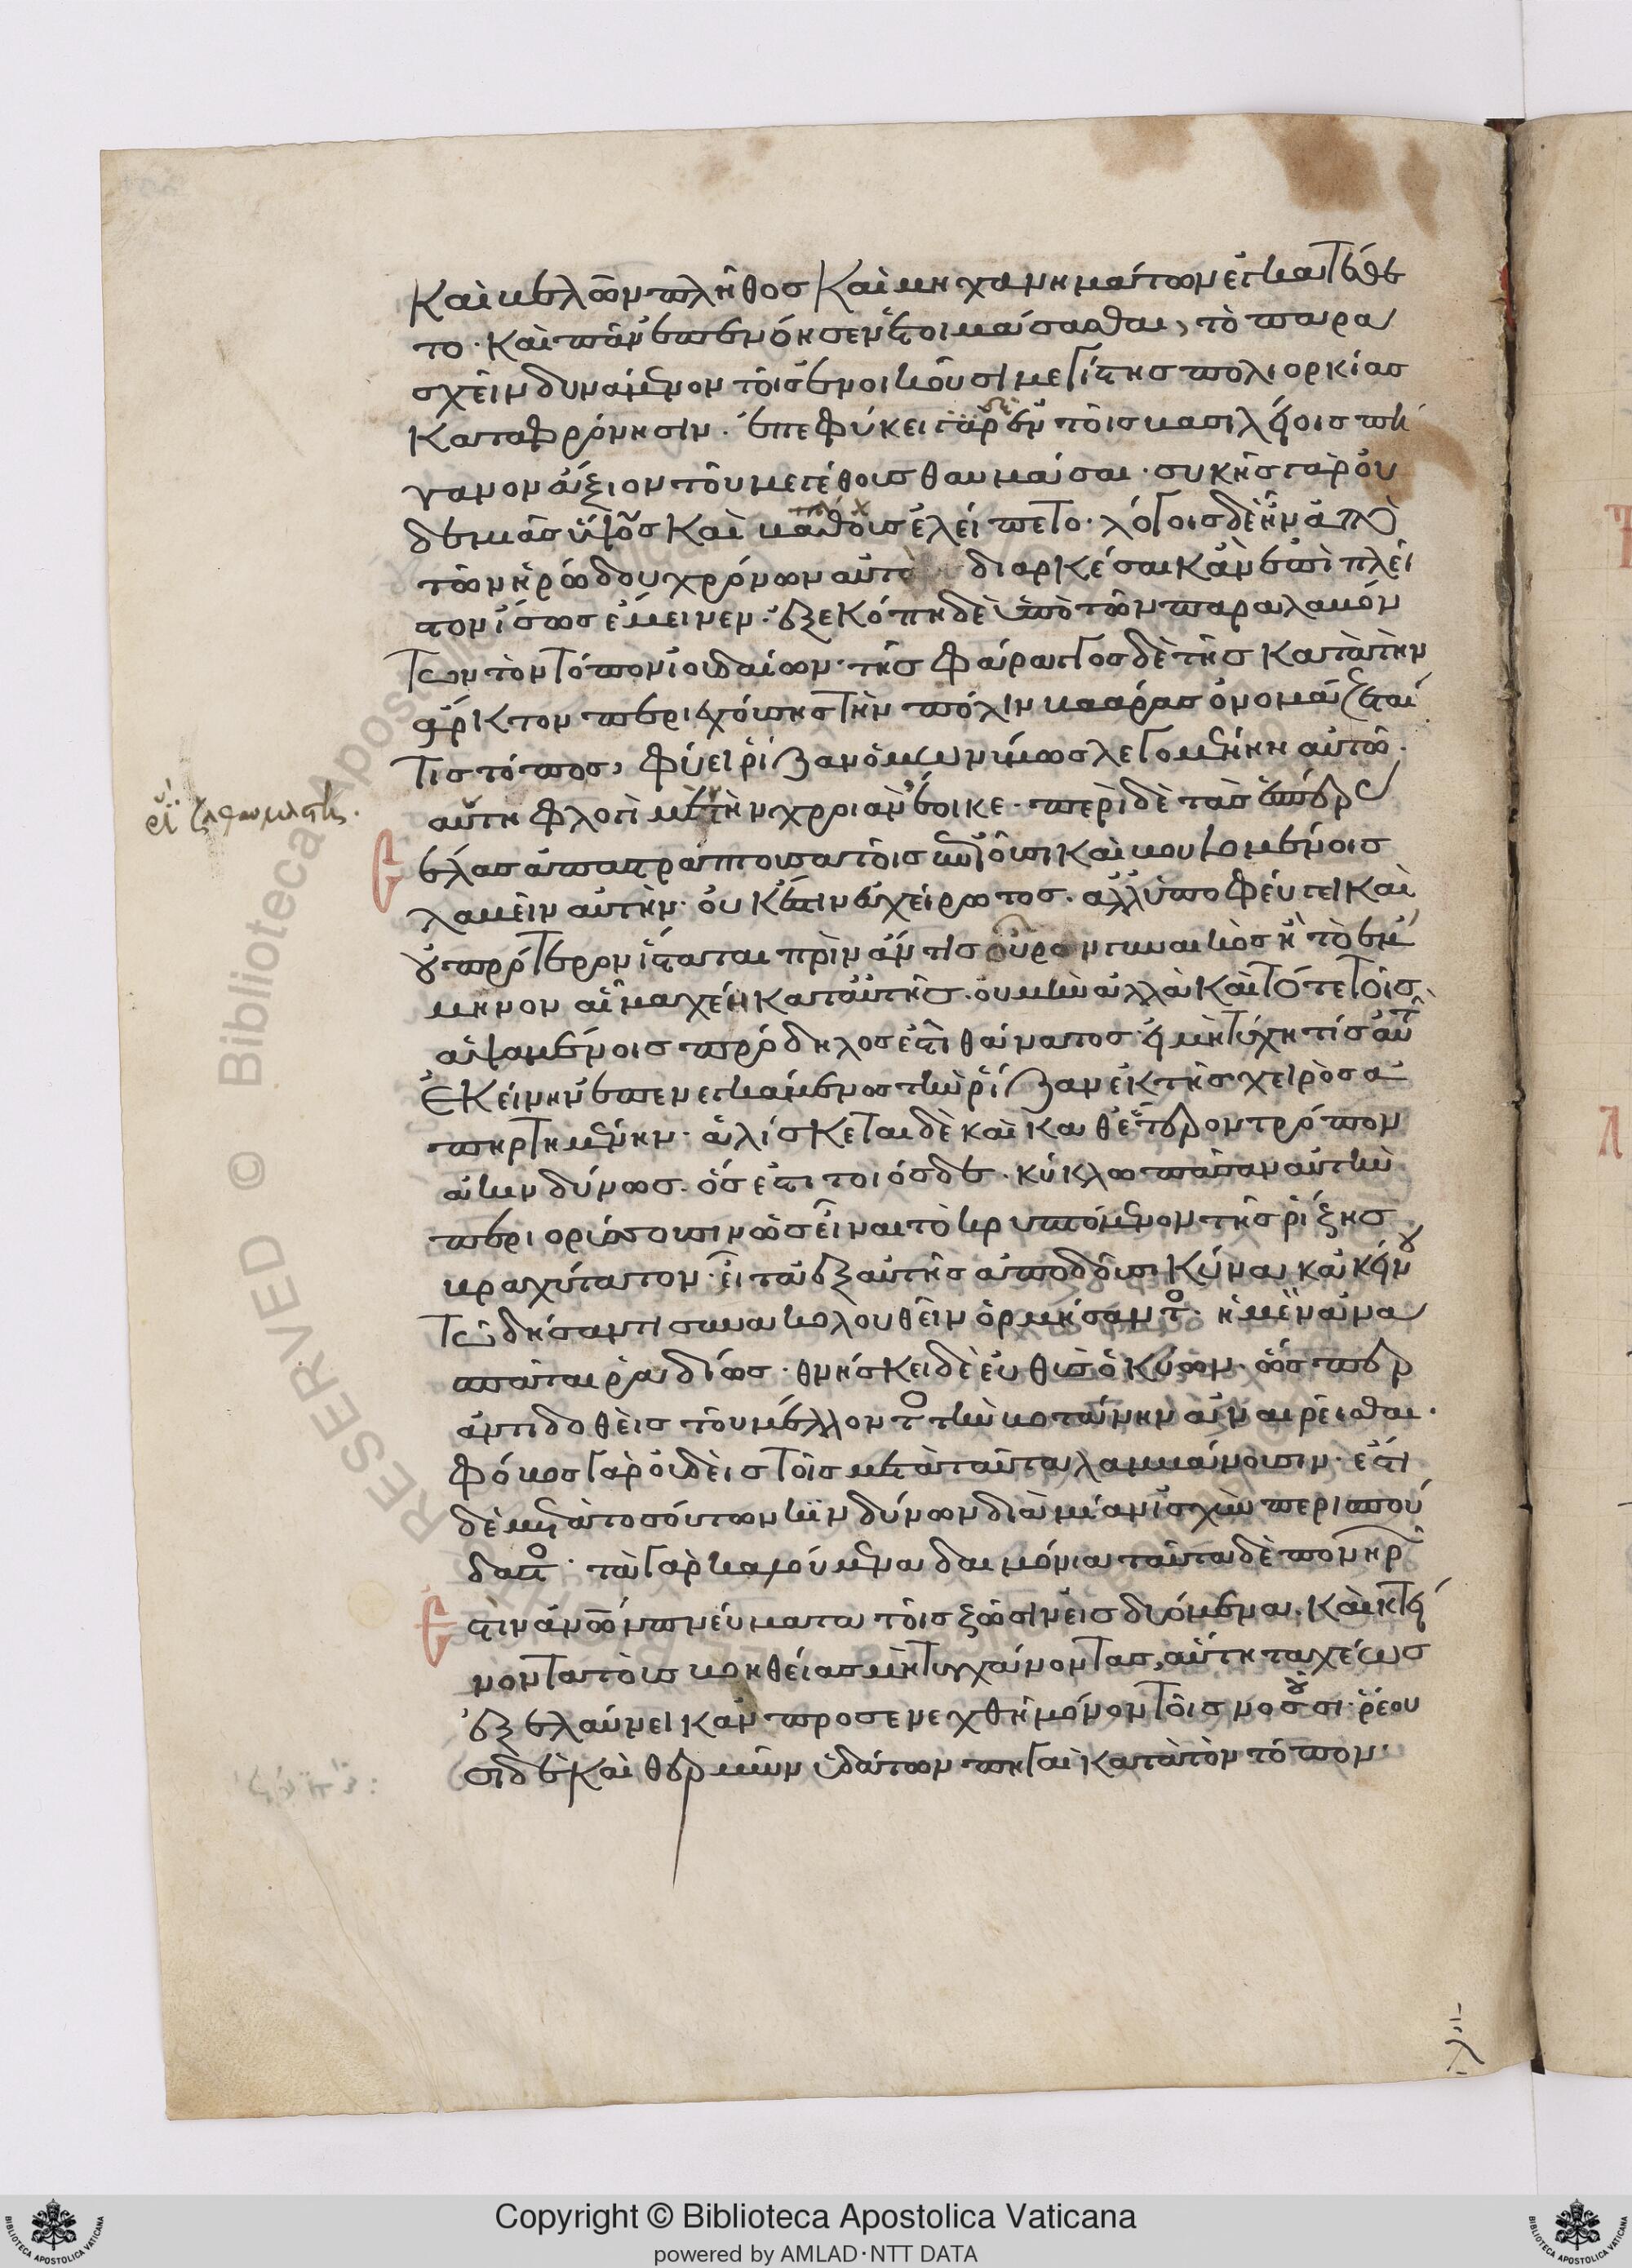 καὶ βελῶν πλῆθος καὶ μηχανημάτων ἐγκατέθε
το· καὶ πᾶν ἐπενόησεν ἑτοιμάσασθαι, τὸ παρα
σχεῖν δυνάμενον τοῖς ἐνοικοῦσι μεγίστης πολιορκίας
καταφρόνησιν. ἐπεφύκει γὰρ ἐν τοῖς βασιλείοις πή
γανον ἄξιον τοῦ μεγέθους θαυμάσαι· συκῆς γὰρ οὐ
δεμιᾶς ὕψος καὶ βάθους ἐλείπετο· λόγοις δὲ ἦν ἀπὸ
τῶν ἡρώδου χρόνων αὐτὸ διαρκέσαι κἂν ἐπὶ πλεῖ
στον ἴσως ἔμεινεν. ἐξεκόπη δὲ ὑπὸ τῶν παραλαβόν
των τὸν τόπον ἰουδαίων· τῆς φάραγγος δὲ τῆς κατὰ τὴν
ἄρκτον περιεχούσης τὴν πόλιν βαάρας ὀνομάζεταί
τις τόπος, φύει ῥίζαν ὁμωνύμως λεγομένην αὐτῶ.
αὕτη φλογὶ μὲν τὴν χροιὰν ἔοικε· περὶ δὲ τὰς ἑσπέρ
σέλας ἀπαστράπτουσα τοῖς ἐπιοῦσι καὶ βουλομένοις
λαβεῖν αὐτὴν· οὐκ ἔστιν εὐχείρωτος. ἀλλ' ὑποφεύγει καὶ
οὐ πρότερον ἵσταται πρὶν ἄν τις οὖρον γυναικὸς ἢ τὸ ἔμ
μηνον αἷμα χέη κατ' αὐτῆς. οὐ μὴν ἀλλὰ καὶ τότε τοῖς
ἁψαμένοις πρόδηλος ἐστὶ θάνατος· εἰ μὴ τύχη τίς αὐτ
ἐκείνην ἐπενεγκάμενος τὴν ῥίζαν ἐκ τῆς χειρὸς ἀ
πηρτημένην· ἁλίσκεται δὲ καὶ καθ' ἕτερον τρόπον
ἀκινδύνως. ὅς ἐστι τοιόσδε. κύκλω πᾶσαν αὐτὴν
περιορύσσουσιν ὡς εἶναι τὸ κρυπτόμενον τῆς ῥίζης
βραχύτατον· εἶτα ἐξ αὐτῆς ἀποδδοῦσι κύνα κἀκείνου
τῶ δήσαντι συνακολουθεῖν ὁρμήσαντος· ἡ μὲν ἀνα
σπᾶται ῥαδίως· θνήσκει δὲ εὐθὺς ὁ κύων. ὥσπερ
ἀντιδοθεὶς τοῦ μέλλοντος τὴν βοτάνην ἀναιρεῖσθαι.
φόβος γὰρ οὐδεὶς τοῖς μετὰ ταῦτα λαμβάνουσιν· ἔστι
δὲ μετὰ τοσούτων κινδύνων διὰ μίαν ἰσχὺν περισπού
δαστος· τὰ γὰρ καλούμενα δαιμόνια ταῦτα δὲ πονηρῶν
ἐστὶν ἀνῶν πνεύματα τοῖς ζῶσιν εἰσδυόμενα. καὶ κτεί
νοντα τοὺς βοηθείας μὴ τυγχάνοντας, αὕτη ταχέως
ἐξελαύνει κἂν προσενεχθῆ μόνον τοῖς νοσοῦσι· ῥέου
σι δὲ καὶ θερμῶν ὑδάτων πηγαὶ κατὰ τὸν τόπον·